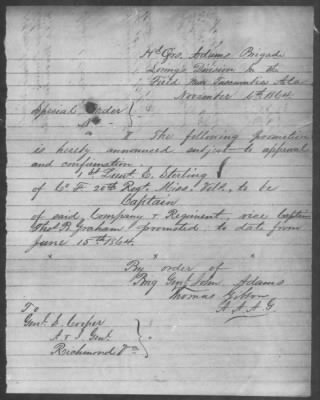 Hd Qrs. Adams Brigade
Loring's Division In the
Field near Tuscumbia Ala
November 4th 1864
Special Order
No
" I The following promotion
is hereby announced subject to approval
and confirmation
1st Lieut. E. Sterling
of Co F 20th Regt. Miss. Vols, to be
Captain
of said Company & Regiment, vice Captain
Thos B. Graham promoted to date from
June 15th 1864.
By order of
Brig Genl John Adams
Thomas Gibson
A. A. A. G.
To
Genl. S. Cooper
A & I Genl.
Richmond Va